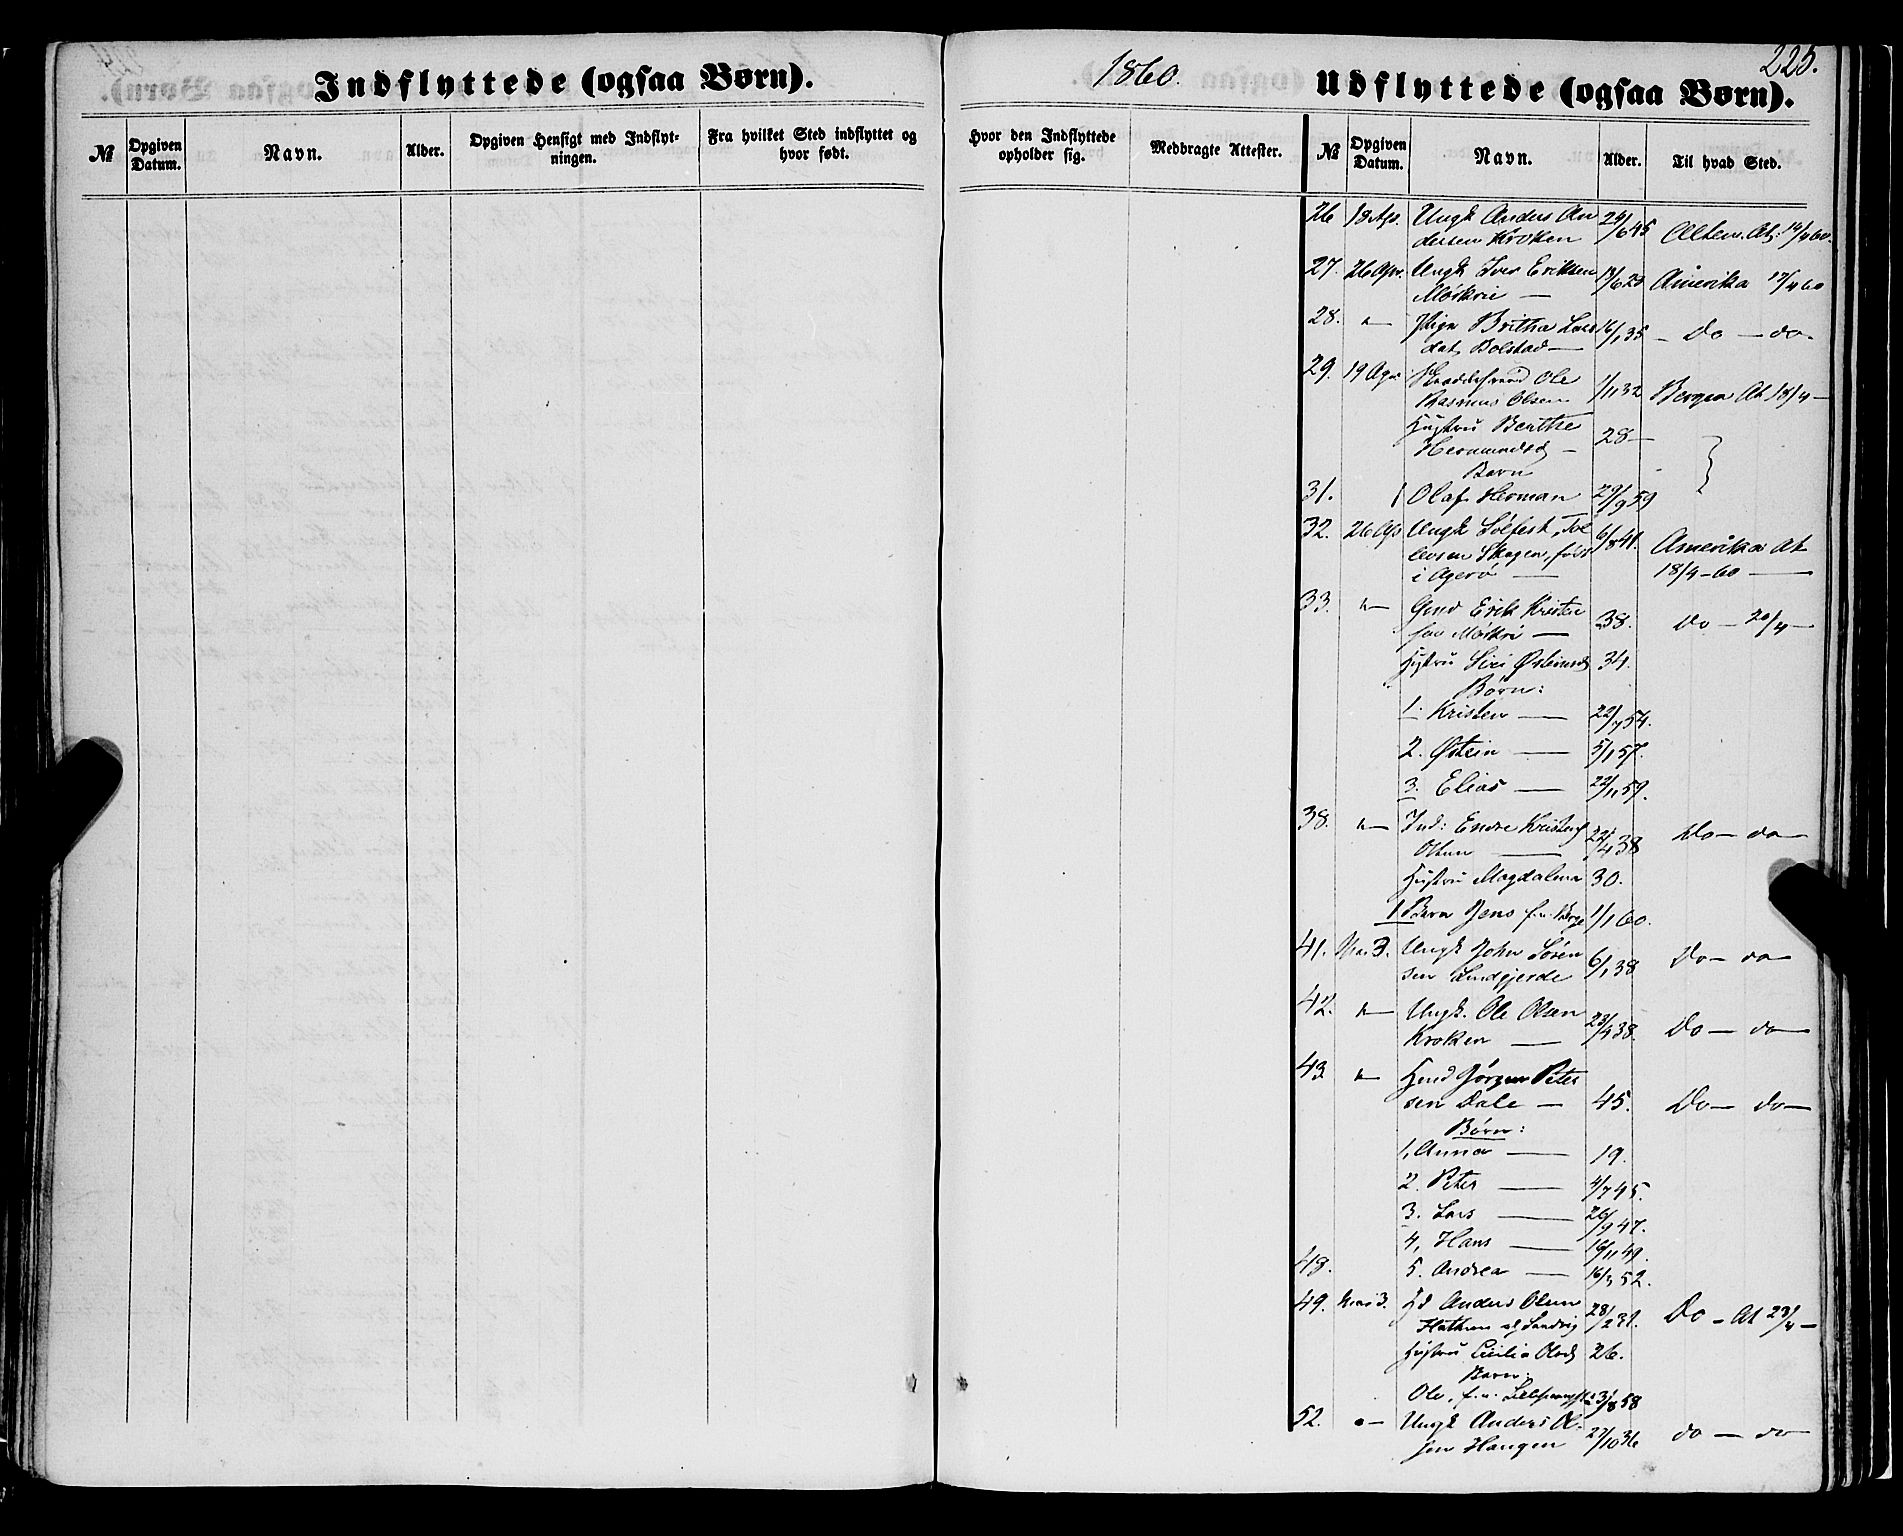 Indflyttede (ogsaa Børn).
1860.
Udflyttede (ogsaa Børn).
225.
№ Opgiven Datum. Navn. Alder. Opgiven Hensigt med Indflytningen. Fra hvilket Sted indflyttet og hvor født.
Hvor den Indflyttede opholder sig. Medbragte Attester. № Opgiven Datum. Navn. Alder. Til hvad Sted.
26 18 Apr. Ungk Anders An 24/6 45 Alten. At. 14/4 60.
dersen Kroken
27. 26 Apr. Ungk Iver Eriksen 13/6 23 Amerika 17/4 60
Mørkrie —
28. „ Pige Britha Lars 16/1 35 — Do — do.
dat. Bolstad —
29. 19 Apr Ole 1/11 32 Bergen At 18/4 —
Rasmus Olsen
Hustru Berthe 28 —
Hermundsd —
Barn
31. 1 Olaf Herman 29/9 59
32. 26 Apr Ungk Sølfest Tol 6/8 41. Amerika At
levsen Skagen, født 18/4 - 60 —
i Agerø —
33. „ Gmd Erik Kristen 38. Do — 20/4 —
sen Mørkri —
Hustru Siri Østensd 34.
Børn:
1. Kristen — 22/7 54.
2. Østein — 5/1 57.
3. Elias — 22/11 59.
38. „ Ind: Endre Kristens 22/4 38 Do — do —
Hustru Magdalena 30.
1 Barn Jens f. u. 1/1 60.
41. Mai 3. Ungk John Søren 6/1 38 Do — do —
sen Lindgjerde
42. „ Ungk. Ole Olsen 23/4 38. Do — do —
Kroken —
43. „ Hmd Jørgen Peter
sen Dale — 45. Do — do —
Børn:
1, Anna — 19.
2. Peter — 4/7 45.
3. Lars — 26/9 47.
4, Hans — 16/11 49.
48. 5. Andrea — 16/3 52.
49. Mai 3. Anders Olsen 28/2 31. Do — At 23/4 —
Hustru Cecilia Olsd 26.
Barn:
Ole, f. u. 3/8 58
52. „ Ungk Anders Ol- 27/10 36 do — do —
sen Haugen